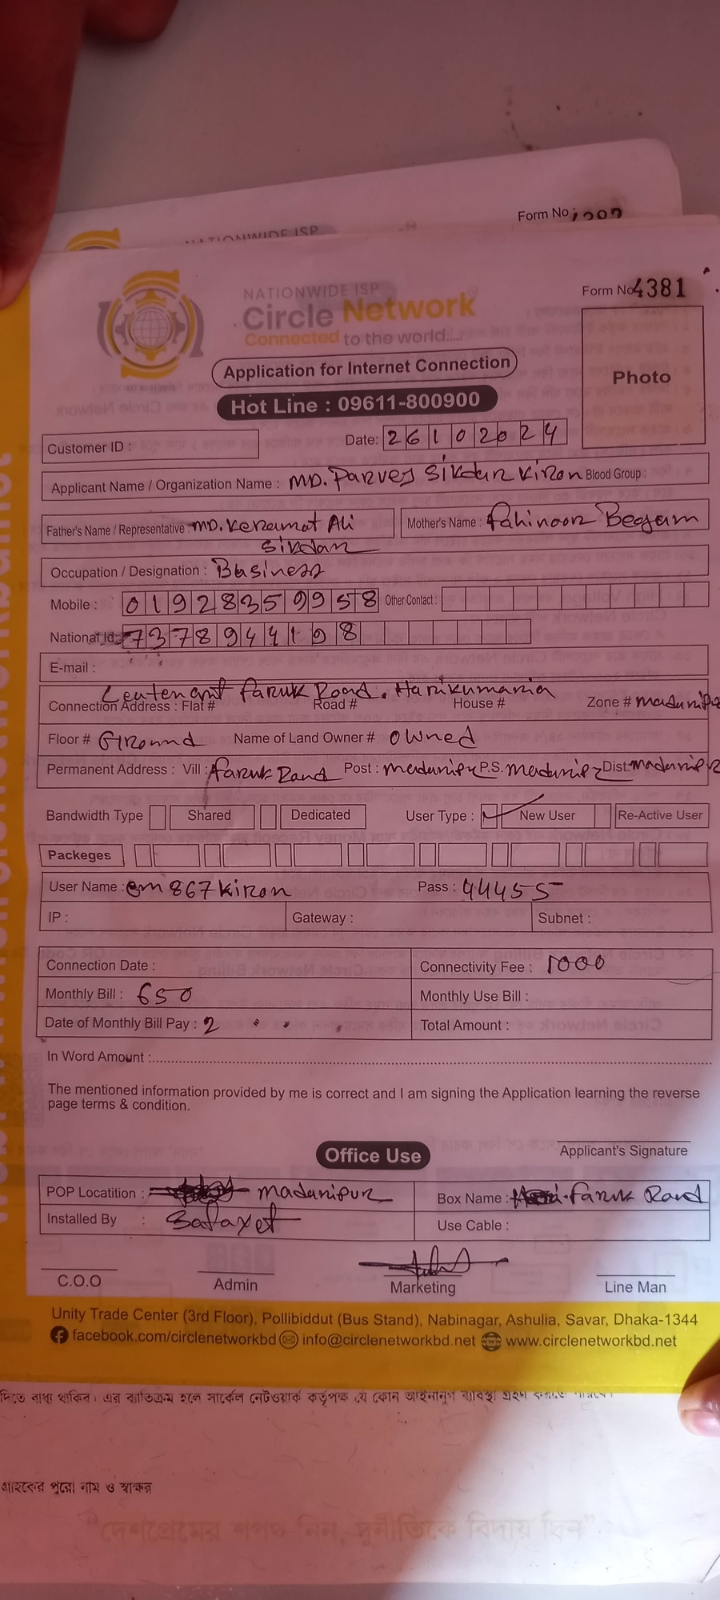 Form No
NATIONWIDE ISP
NATIONWIDE ISP
Circle Network
Connected to the world....
Form No 4381
Photo
Application for Internet Connection
Hot Line : 09611-800900
Customer ID :
Date: 26102024
Applicant Name / Organization Name : MD. Parvej Sikdar Kiron Blood Group :
Father's Name / Representative : MD. Keramat Ali Sikdar
Mother's Name : Fahinoor Begum
Occupation / Designation : Business
Mobile : 01928359958 Other Contact :
National Id: 7378944198
E-mail :
Leutenant Faruk Road, Harikumaria
Connection Address : Flat # Road # House # Zone # Madaripur
Floor # Ground Name of Land Owner # Owned
Permanent Address : Vill : Faruk Road Post : Madaripur P.S. Madaripur Dist: Madaripur
Bandwidth Type Shared Dedicated User Type : New User Re-Active User
Packeges
User Name : cm867kiron Pass : 44455
IP : Gateway : Subnet :
Connection Date : Connectivity Fee : 1000
Monthly Bill : 650 Monthly Use Bill :
Date of Monthly Bill Pay : 2 Total Amount :
In Word Amount :
The mentioned information provided by me is correct and I am signing the Application learning the reverse
page terms & condition.
Applicant's Signature
Office Use
POP Locatition : Madaripur Box Name : Faruk Road
Installed By : Safayet Use Cable :
C.O.O Admin Marketing Line Man
Unity Trade Center (3rd Floor), Pollibiddut (Bus Stand), Nabinagar, Ashulia, Savar, Dhaka-1344
facebook.com/circlenetworkbd info@circlenetworkbd.net www.circlenetworkbd.net
দিতে বাধ্য থাকিব। এর ব্যতিক্রম হলে সার্কেল নেটওয়ার্ক কর্তৃপক্ষ যে কোন আইনানুগ ব্যবস্থা গ্রহণ করতে পারবে।
গ্রাহকের পুরো নাম ও স্বাক্ষর
"দেশপ্রেমের শপথ নিন, দুর্নীতিকে বিদায় দিন"